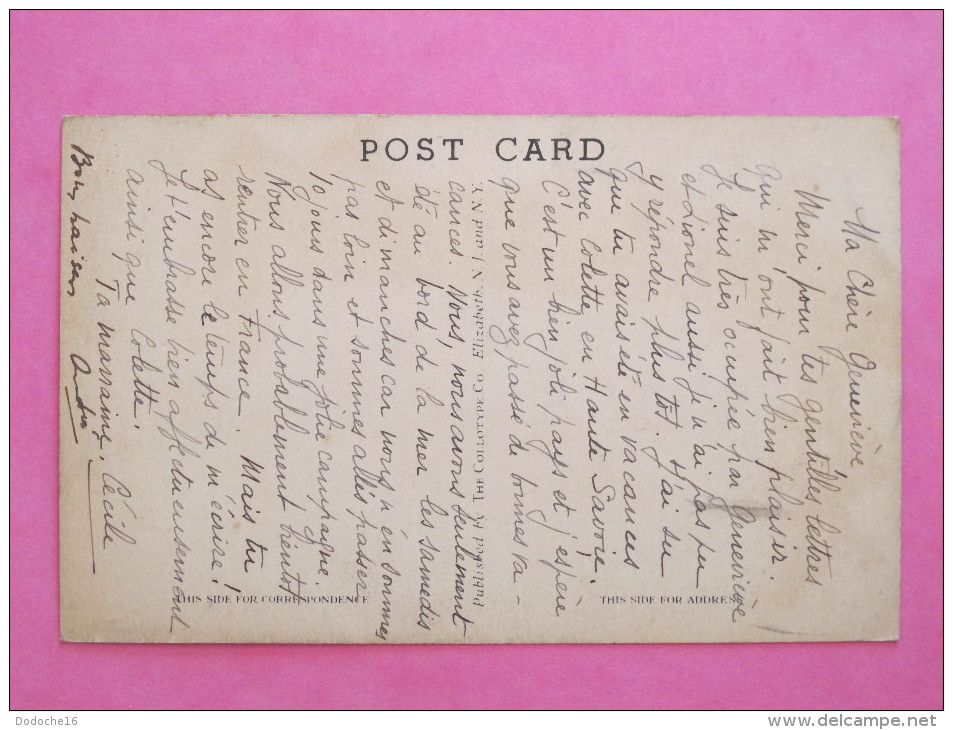 POST CARD
Ma Chère Geneviève
Merci pour tes gentilles lettres
qui m'ont fait bien plaisir.
Je suis très occupée par Geneviève
et Lionel aussi je n'ai pas pu
y répondre plus tôt. J'ai su
que tu avais été en vacances
avec Colette, en Haute Savoie.
C'est un bien joli pays et j'espère
que vous avez passé de bonnes va-
cances. Nous, nous avons seulement
été au bord de la mer les samedis
et dimanches car nous n'en sommes
pas loin et sommes allés passer
10 jours dans une jolie campagne.
Nous allons probablement bientôt
rentrer en France. Mais tu
as encore le temps de m'écrire!
Je t'embrasse bien affectueusement
ainsi que Colette.
Ta marraine, Cécile
Bons baisers
Published by THE COLLOTYPE CO., Elizabeth, N. J., and N. Y.
THIS SIDE FOR CORRESPONDENCE
THIS SIDE FOR ADDRESS
Dodoche16
delcampe.net